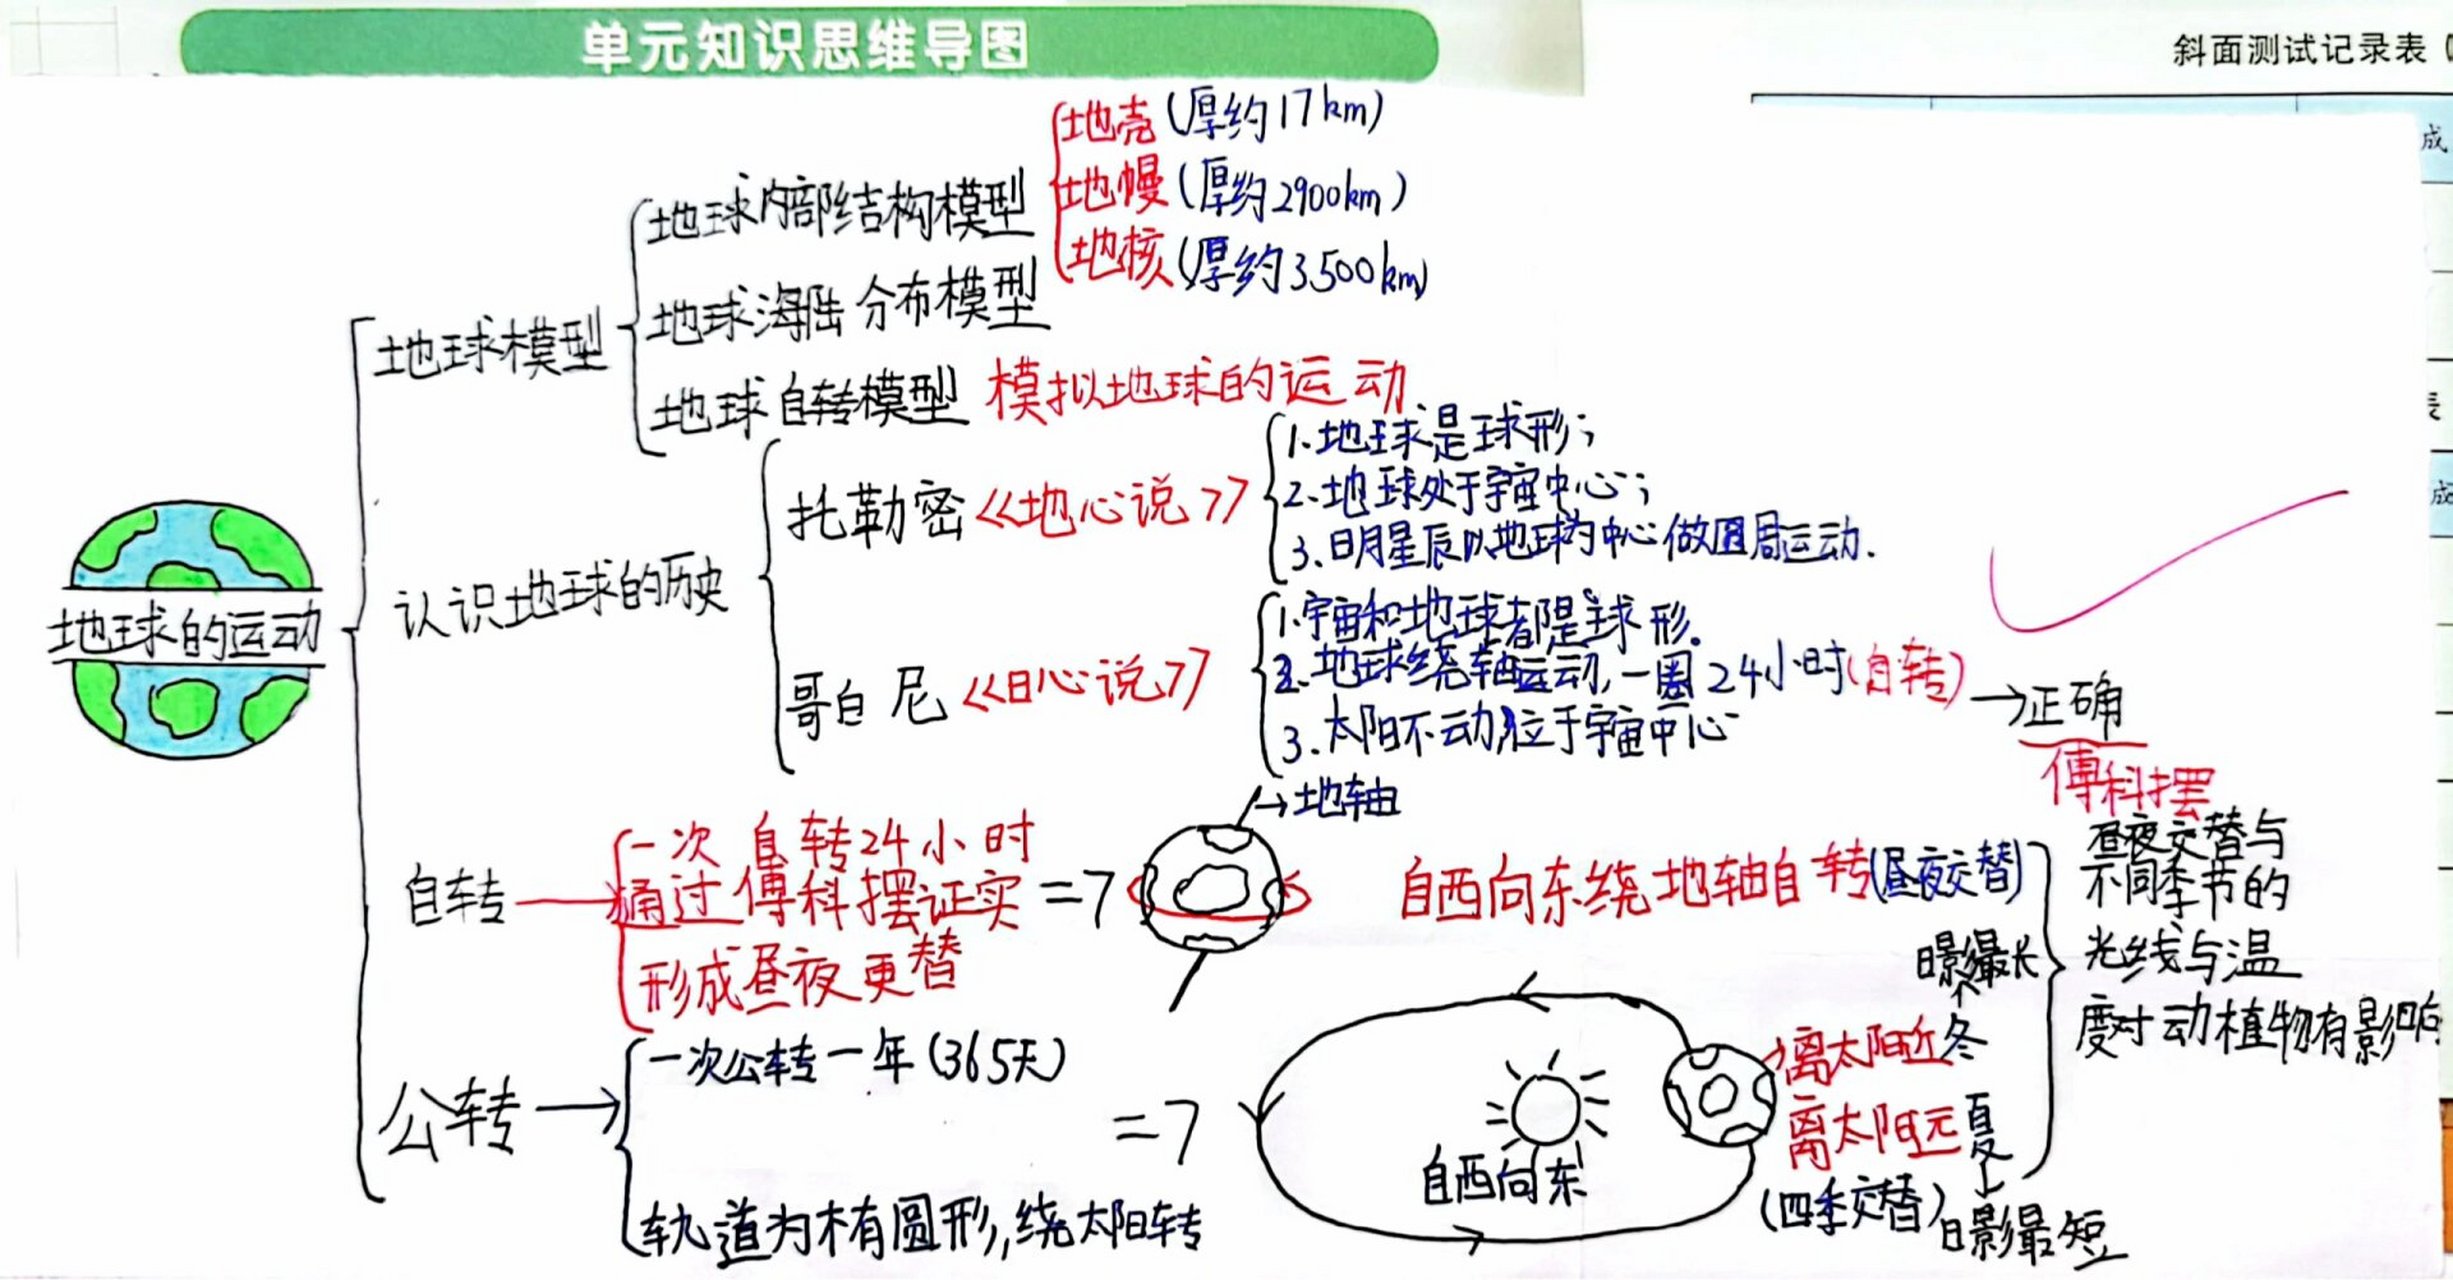 单元知识思维导图
斜面测试记录表
成
表
成
地球的运动
地球模型
地球内部结构模型
地壳(厚约17km)
地幔(厚约2900km)
地核(厚约3500km)
地球海陆分布模型
地球自转模型 模拟地球的运动
认识地球的历史
托勒密《地心说》
1.地球是球形;
2.地球处于宇宙中心;
3.日月星辰以地球为中心做圆周运动.
哥白尼《日心说》
1.宇宙和地球都是球形.
2.地球绕轴运动,一圈24小时(自转)
3.太阳不动,位于宇宙中心
→正确
傅科摆
自转
一次自转24小时
通过傅科摆证实
形成昼夜更替
→地轴
自西向东绕地轴自转(昼夜交替)
公转→
一次公转一年(365天)
轨道为椭圆形,绕太阳转
自西向东
日影最长
离太阳近冬
离太阳远夏
(四季交替)
日影最短
昼夜交替与
不同季节的
光线与温
度对动植物有影响